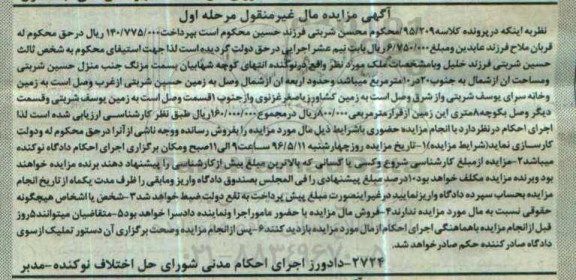 آگهی مزایده مال غیرمنقول مرحله اول
نظریه اینکه درپرونده کلاسه ۹۵/۲۰۹ محکوم محسن شربتی فرزند حسین محکوم است بپرداخت ۱۴۰/۷۷۵/۰۰۰ ریال درحق محکوم له
قربان ملاح فرزند عابدین ومبلغ ۶/۷۵۰/۰۰۰ ریال بابت نیم عشر اجرایی درحق دولت گردیده است لذا جهت استیفای محکوم به شخص ثالث
حسین شربتی فرزند خلیل وبامشخصات ملک مورد نظر واقع درنوکنده انتهای کوچه شهابیان بسمت مزنگ جنب منزل حسین شربتی
ومساحت ان ازشمال به جنوب ۲۰در ۱۰مترمربع میباشد وحدود اربعه ان ازشمال وصل به زمین حسین شربتی ازغرب وصل است به زمین
وخانه سرای یوسف شربتی واز شرق وصل است به زمین کشاورزیاصغر غزنوی وازجنوب ۱قسمت وصل است به زمین یوسف شربتی وقسمت
دیگر وصل بکوچه ۸متری این زمین ازقرازمترمربعی ۸۰۰/۰۰۰ریال درمجموع ۱۶۰/۰۰۰/۰۰۰ریال طبق نظر کارشناسی ارزیابی شده است لذا
اجرای احکام درنظردارد با انجام مزایده حضوری باشرایط ذیل مال مورد مزایده را بفروش رسانده ووجه ناشی از آنرا درحق محکوم له ودولت
کارسازی نماید(شرایط مزایده) ۱-تاریخ مزایده روزچهارشنبه ۹۶/۵/۱۱ ساعت ۹ الی ۱۱صبح ومکان برگزاری اجرای احکام دادگاه نوکنده
میباشد ۲-مزایده ازمبلغ کارشناسی شروع وکسی یا کسانی که بالاترین مبلغ بیش ازکارشناسی را پیشنهاد دهند برنده مزایده خواهند
بود وبرنده مزایده مکلف خواهد بود۱۰درصد مبلغ پیشنهادی را فی المجلس بصندوق دادگاه واریز ومابقی را ظرف مدت یکماه از تاریخ انجام
مزایده بحساب سپرده دادگاه واریزنمایید درغیراینصورت مبلغ پیش پرداخت به نفع دولت ضبط خواهد شد ۳-شخص یا اشخاص هیچگونه
حقوقی نسبت به مال مورد مزایده ندارند ۴-فروش مال مزایده با حضور ماموراجرا ونماینده دادسرا خواهد بود ۵-متقاضیان میتوانند ۵روز
قبل ازانجام مزایده باهماهنگی اجرای احکام ازمال مورد مزایده بازدید کنند ۶-پس ازانجام مزایده وصحت برگزاری آن دستور تملیک ازسوی
دادگاه صادر کننده حکم صادر خواهد شد.
۲۷۲۴-دادورز اجرای احکام مدنی شورای حل اختلاف نوکنده-مدبر